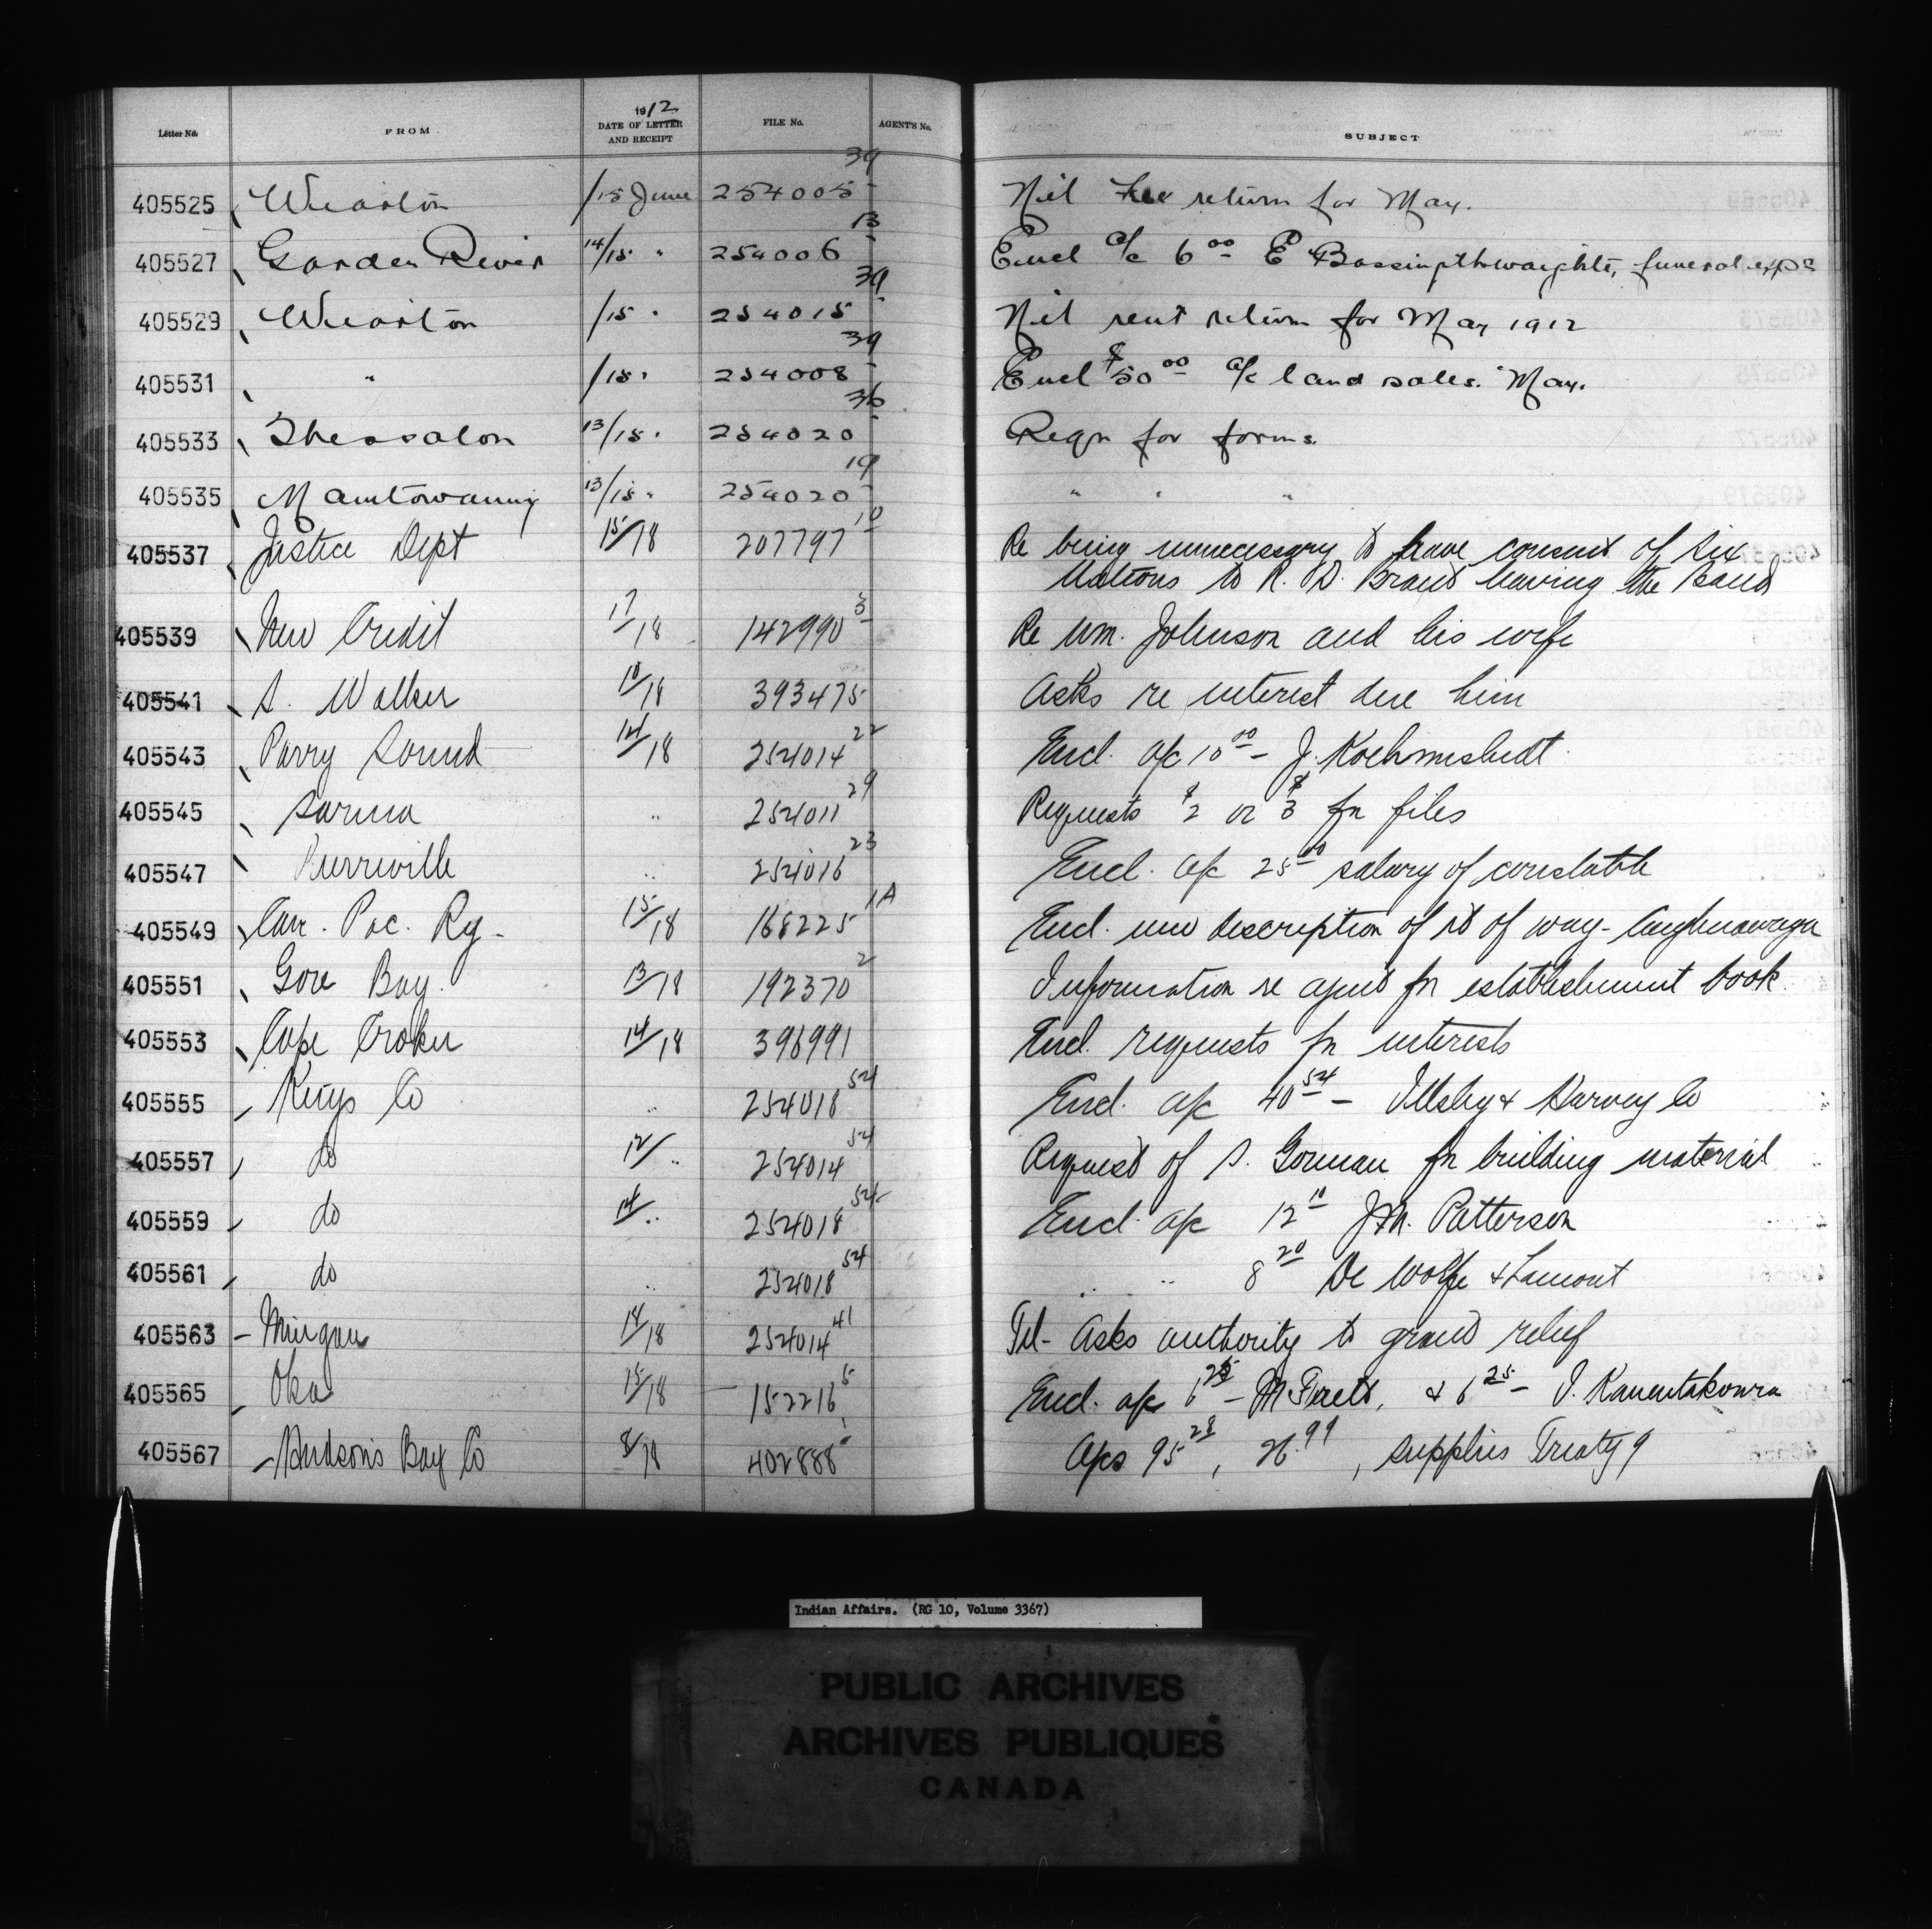 Letter No. FROM 1912 DATE OF LETTER AND RECEIPT FILE No. AGENT'S No. SUBJECT
405525 Wiarton /15 June 254005 39 Nil return for May.
405527 Garden River 14/15 " 254006 13 Encl a/c 6 00 E Bassingthwaighte, funeral exps
405529 Wiarton /15 " 254015 39 Nil rent return for May 1912
405531 " /15 " 254008 39 Encl $50 00 a/c land sales. May.
405533 Thessalon 13/15 " 254020 36 Reqn for forms.
405535 Manitowaning 13/15 " 254020 19 " " "
405537 Justice Dept 15/18 207797 10 Re being unnecessary to have consent of Six
Nations to R. D. Brant leaving the Band
405539 New Credit 17/18 142990 3 Re Wm. Johnson and his wife
405541 S. Walker 10/18 393475 Asks re interest due him
405543 Parry Sound 14/18 254014 22 Encl. a/c 10 00 - J.
405545 Sarnia " 254011 29 Requests $2 or $3 for files
405547 Birrville " 254016 23 Encl. a/c 25 00 salary of constable
405549 Can. Pac. Ry. 15/18 168225 1A Encl. new description of rt of way - Caughnawaga
405551 Gore Bay. 13/18 192370 2 Information re agent for establishment book
405553 Cape Croker 14/18 396991 Encl. requests for interests
405555 Kings Co " 254018 54 Encl. a/c 40 54 - Illsley & Harvey Co
405557 do 12/ " 254014 54 Request of S. Gorman for building material
405559 do 14/ " 254018 54 Encl. a/c 12 10 J.M. Patterson
405561 do " 254018 54 " " 8 20 De Wolfe & Lamont
405563 - Mingan 14/18 254014 41 Tel- Asks authority to grant relief
405565 Oka 15/18 152216 5 Encl. a/c 6 25 - M Tirelt, & 6 25 -
405567 Hudson's Bay Co 8/18 402888 1 A/cs 95 28, 26.99, supplies Treaty 9
Indian Affairs. (RG 10, Volume 3367)
PUBLIC ARCHIVES
ARCHIVES PUBLIQUES
CANADA